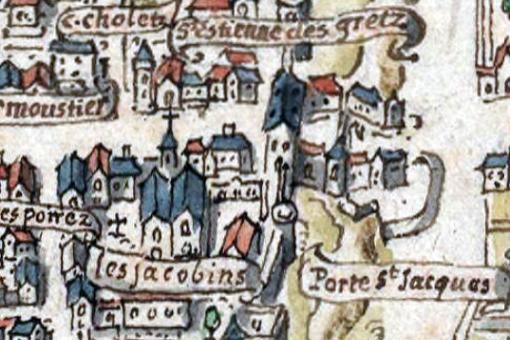 c. choletz
St estienne des gretz
moustier
es porrez
les jacobins
Porte St Jacques